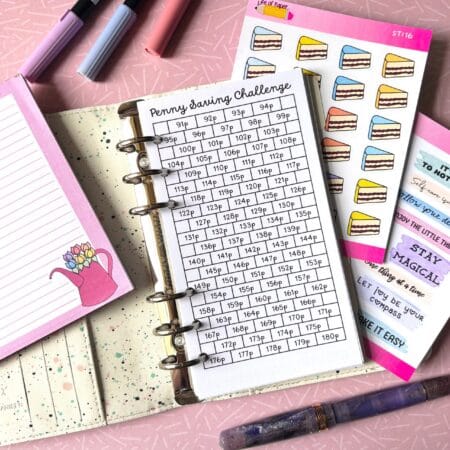 Life of Paper
ST116
Penny Saving Challenge
91p 92p 93p 94p
95p 96p 97p 98p 99p
100p 101p 102p 103p
104p 105p 106p 107p 108p
109p 110p 111p 112p
113p 114p 115p 116p 117p
118p 119p 120p 121p
122p 123p 124p 125p 126p
127p 128p 129p 130p
131p 132p 133p 134p 135p
136p 137p 138p 139p
140p 141p 142p 143p 144p
145p 146p 147p 148p
149p 150p 151p 152p 153p
154p 155p 156p 157p
158p 159p 160p 161p 162p
163p 164p 165p 166p
167p 168p 169p 170p 171p
172p 173p 174p 175p
176p 177p 178p 179p 180p
TO NOT
ENJOY THE LITTLE
STAY
MAGICAL
One thing at a time
LET JOY BE YOUR
COMPASS
IT EASY